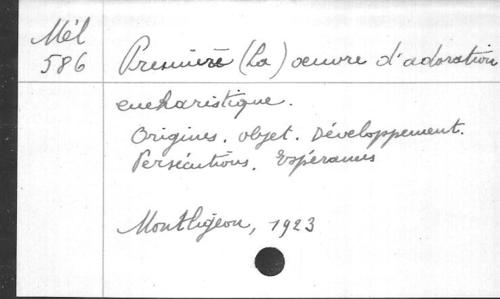 Mél
586
Première (La) œuvre d'adoration
eucharistique.
Origines. Objet. Développement.
Persécutions. Espérances
Montligeon, 1923